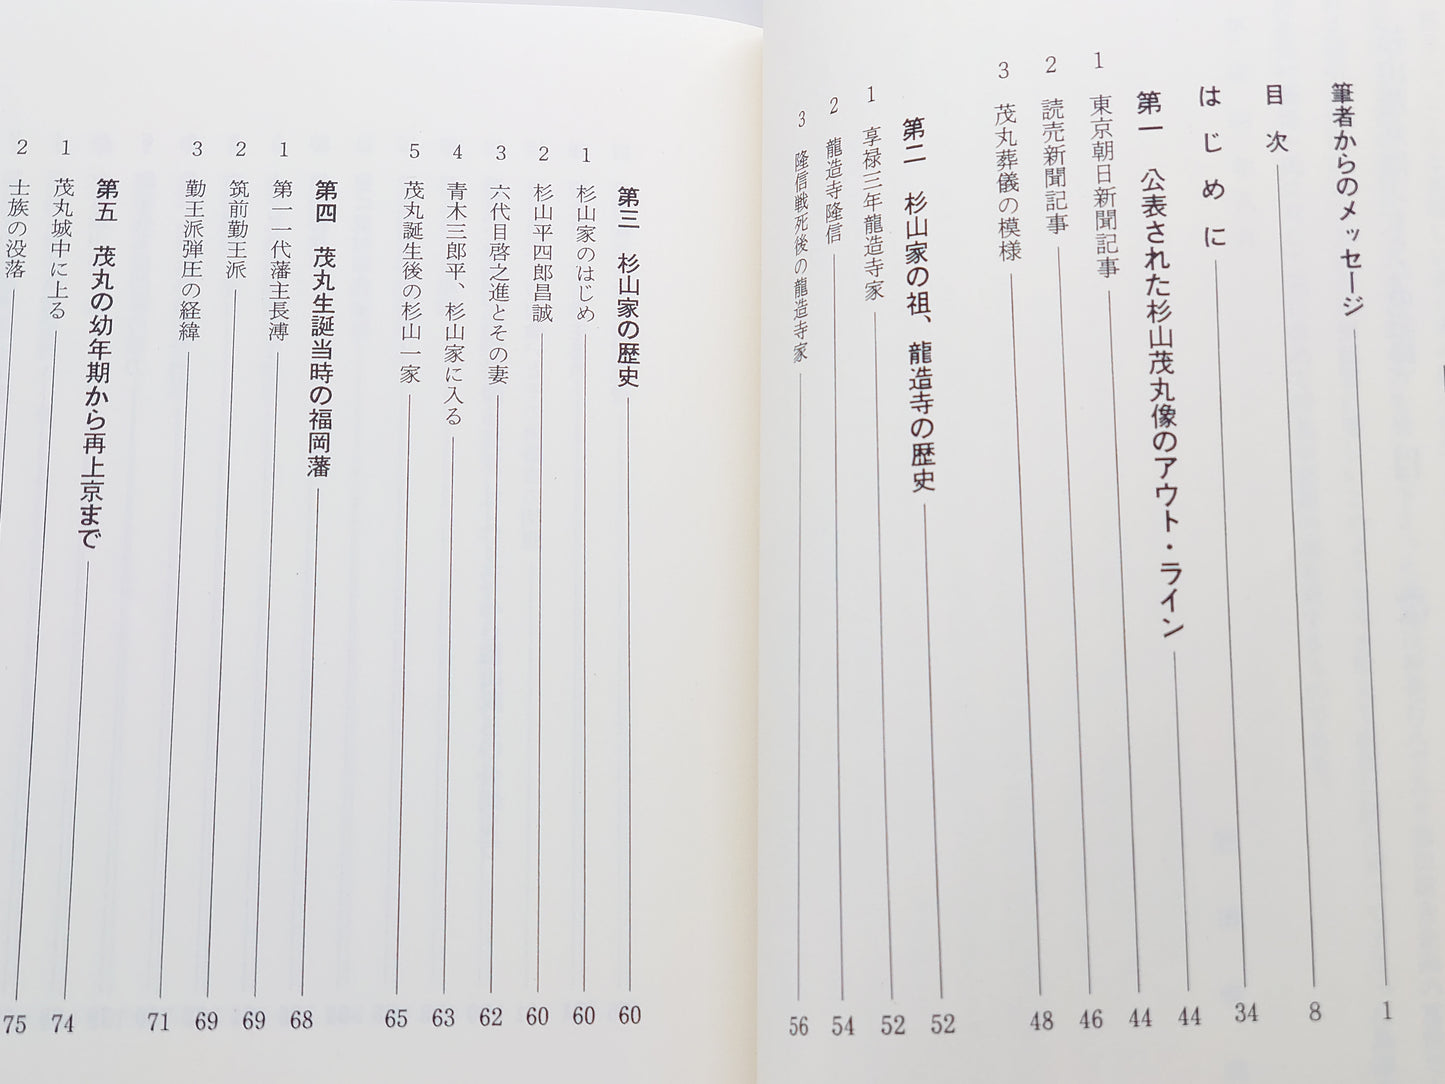 筆者からのメッセージ 1
目次 8
はじめに 34
第一 公表された杉山茂丸像のアウト・ライン 44
1 東京朝日新聞記事 44
2 読売新聞記事 46
3 茂丸葬儀の模様 48
第二 杉山家の祖、龍造寺の歴史 52
1 享禄三年龍造寺家 52
2 龍造寺隆信 54
3 隆信戦死後の龍造寺家 56
第三 杉山家の歴史 60
1 杉山家のはじめ 60
2 杉山平四郎昌誠 60
3 六代目啓之進とその妻 62
4 青木三郎平、杉山家に入る 63
5 茂丸誕生後の杉山一家 65
第四 茂丸生誕当時の福岡藩 68
1 第一一代藩主長溥 69
2 筑前勤王派 69
3 勤王派弾圧の経緯 71
第五 茂丸の幼年期から再上京まで 74
1 茂丸城中に上る 74
2 士族の没落 75